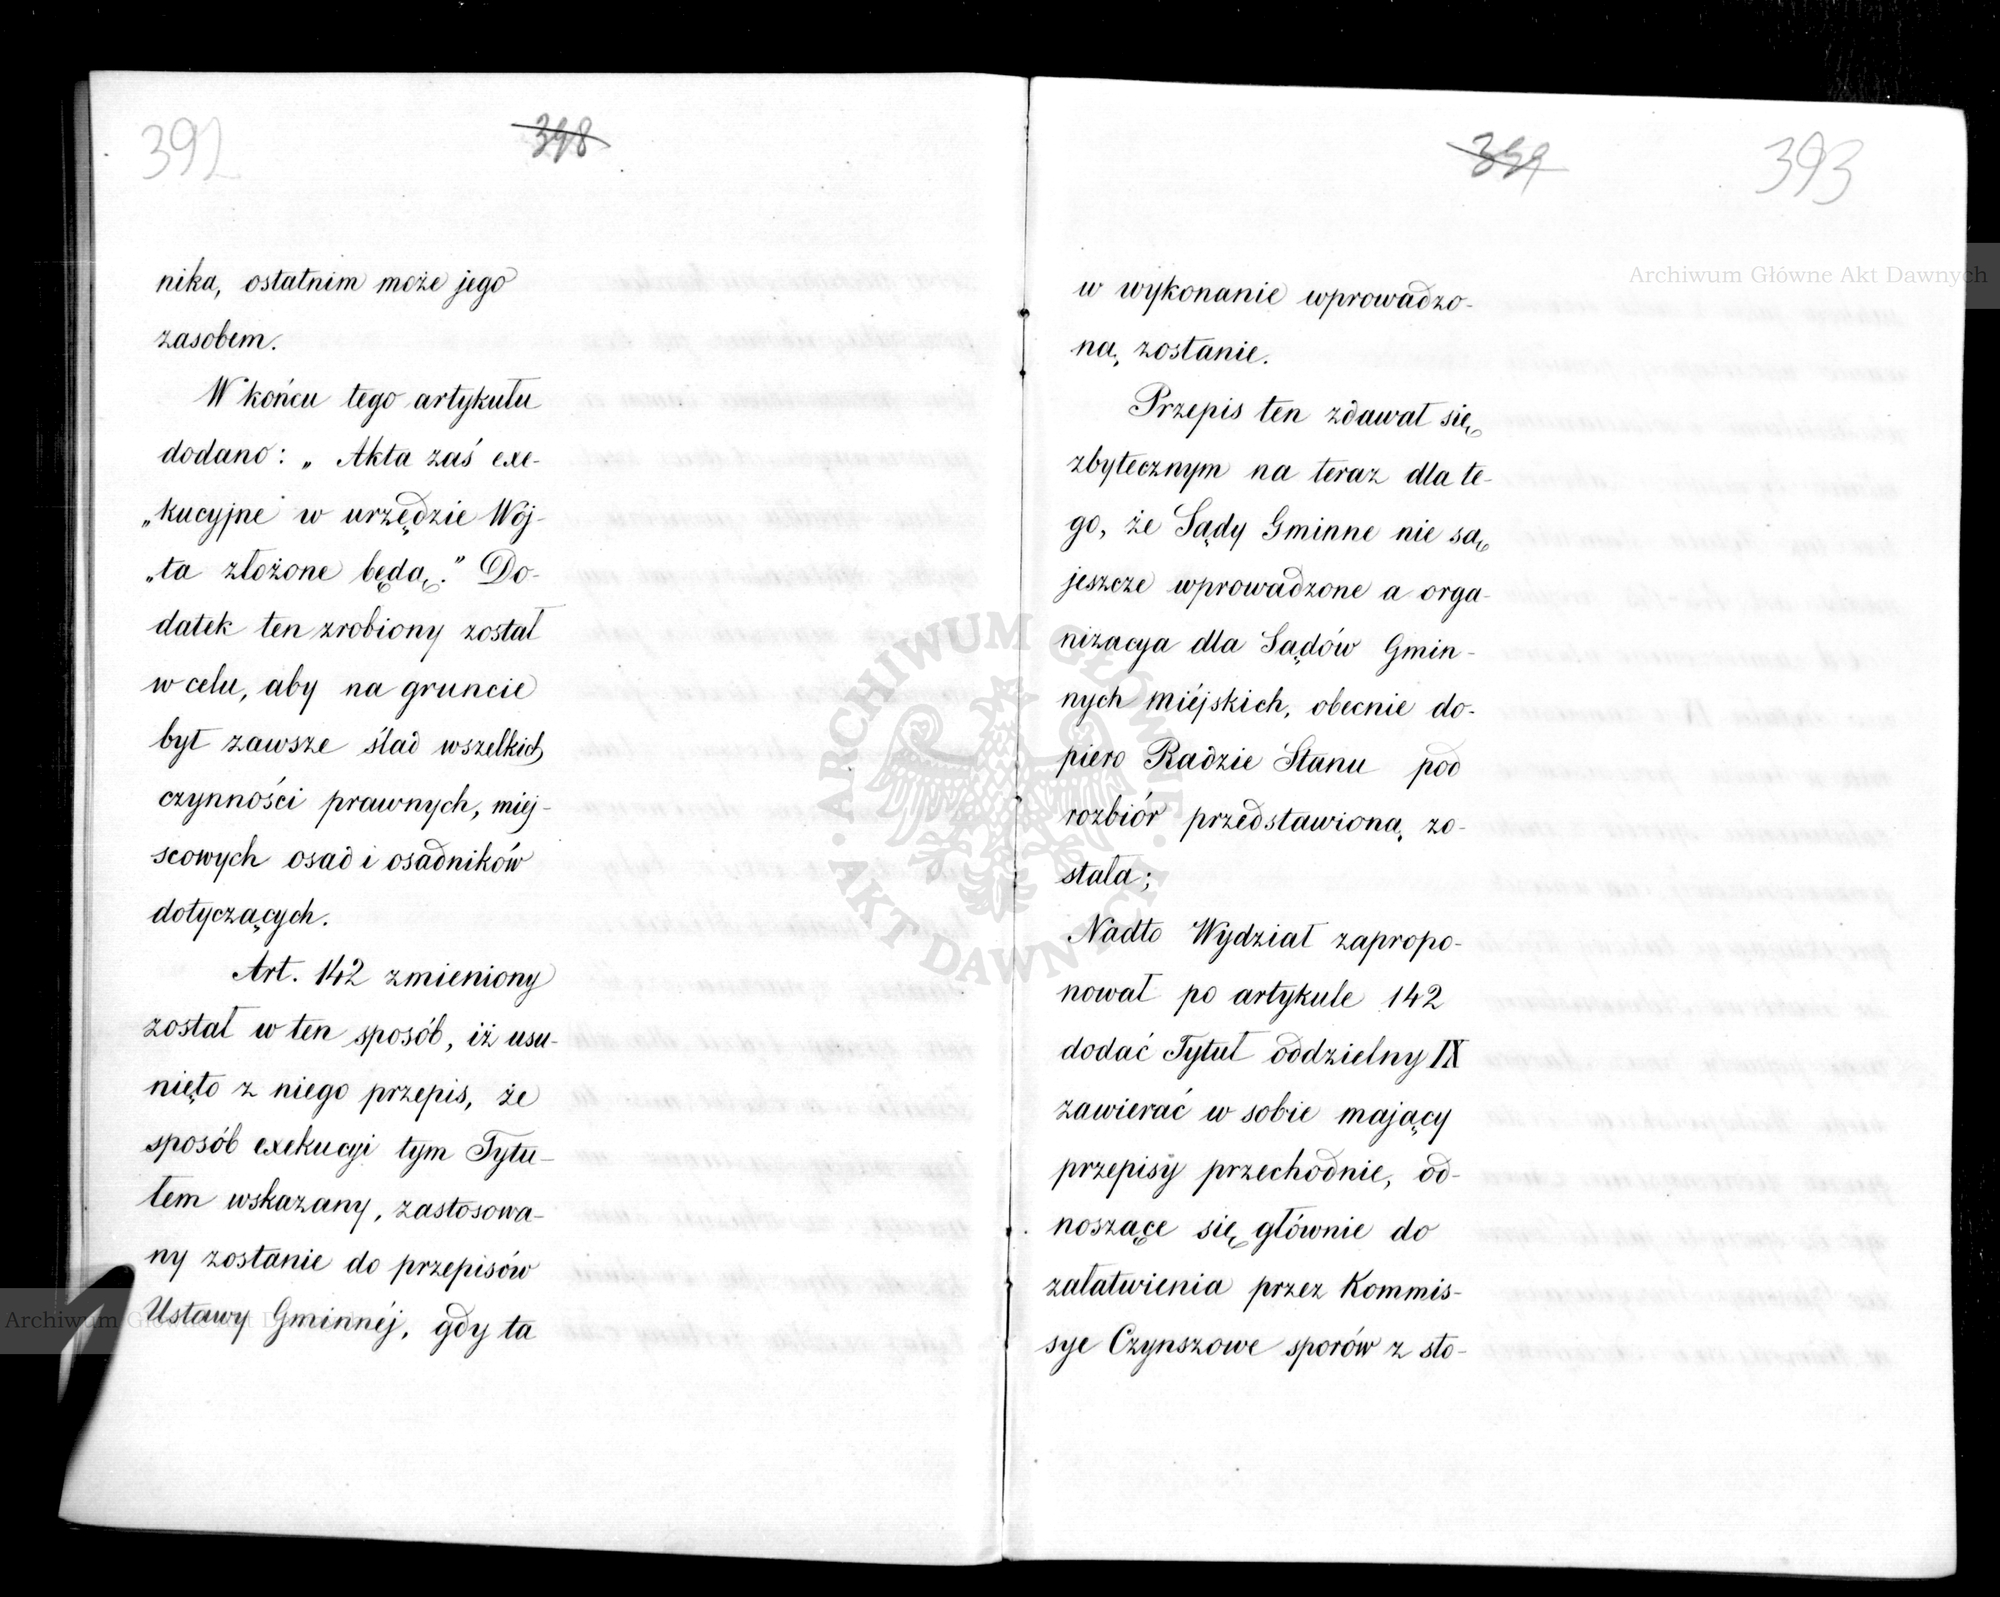 392
398
nika, ostatnim może jego
zasobem.
W końcu tego artykułu
dodano: „Akta zaś exe-
„kucyjne w urzędzie Wój-
„ta złożone będą." Do-
datek ten zrobiony został
w celu, aby na gruncie
był zawsze ślad wszelkich
czynności prawnych, miej-
scowych osad i osadników
dotyczących.
Art. 142 zmieniony
został w ten sposób, iż usu-
nięto z niego przepis, że
sposób exekucyi tym Tytu-
łem wskazany, zastosowa-
ny zostanie do przepisów
Ustawy Gminnéj, gdy ta
399
393
w wykonanie wprowadzo-
ną zostanie.
Przepis ten zdawał się
zbytecznym na teraz dla te-
go, że Sądy Gminne nie są
jeszcze wprowadzone a orga-
nizacya dla Sądów Gmin-
nych miéjskich, obecnie do-
piero Radzie Stanu pod
rozbiór przedstawioną zo-
stała;
Nadto Wydział zapropo-
nował po artykule 142
dodać Tytuł oddzielny IX
zawierać w sobie mający
przepisy przechodnie, od-
noszące się głównie do
załatwienia przez Kommis-
sye Czynszowe sporów z sto-
Archiwum Główne Akt Dawnych
ARCHIWUM GŁÓWNE · AKT DAWNYCH ·
Archiwum Główne Akt D